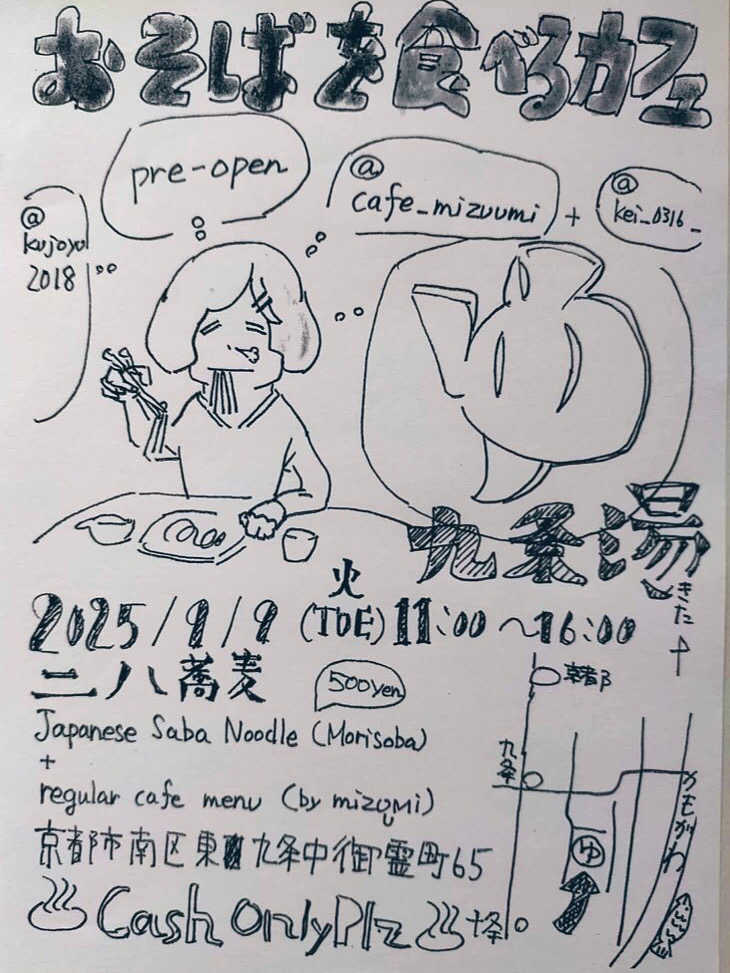 おそばを食べるカフェ
pre-open
@
cafe_mizuumi
+
@
kei_0316_
@
kujoyu
2018
九条湯
きた
火
2025/9/9 (TUE) 11:00～16:00
二八蕎麦
500yen
Japanese Saba Noodle (Morisoba)
+
regular cafe menu (by mizuumi)
京都市南区東九条中御霊町65
♨ Cash Only Plz ♨
京都
九条
十条
かもがわ
ゆ